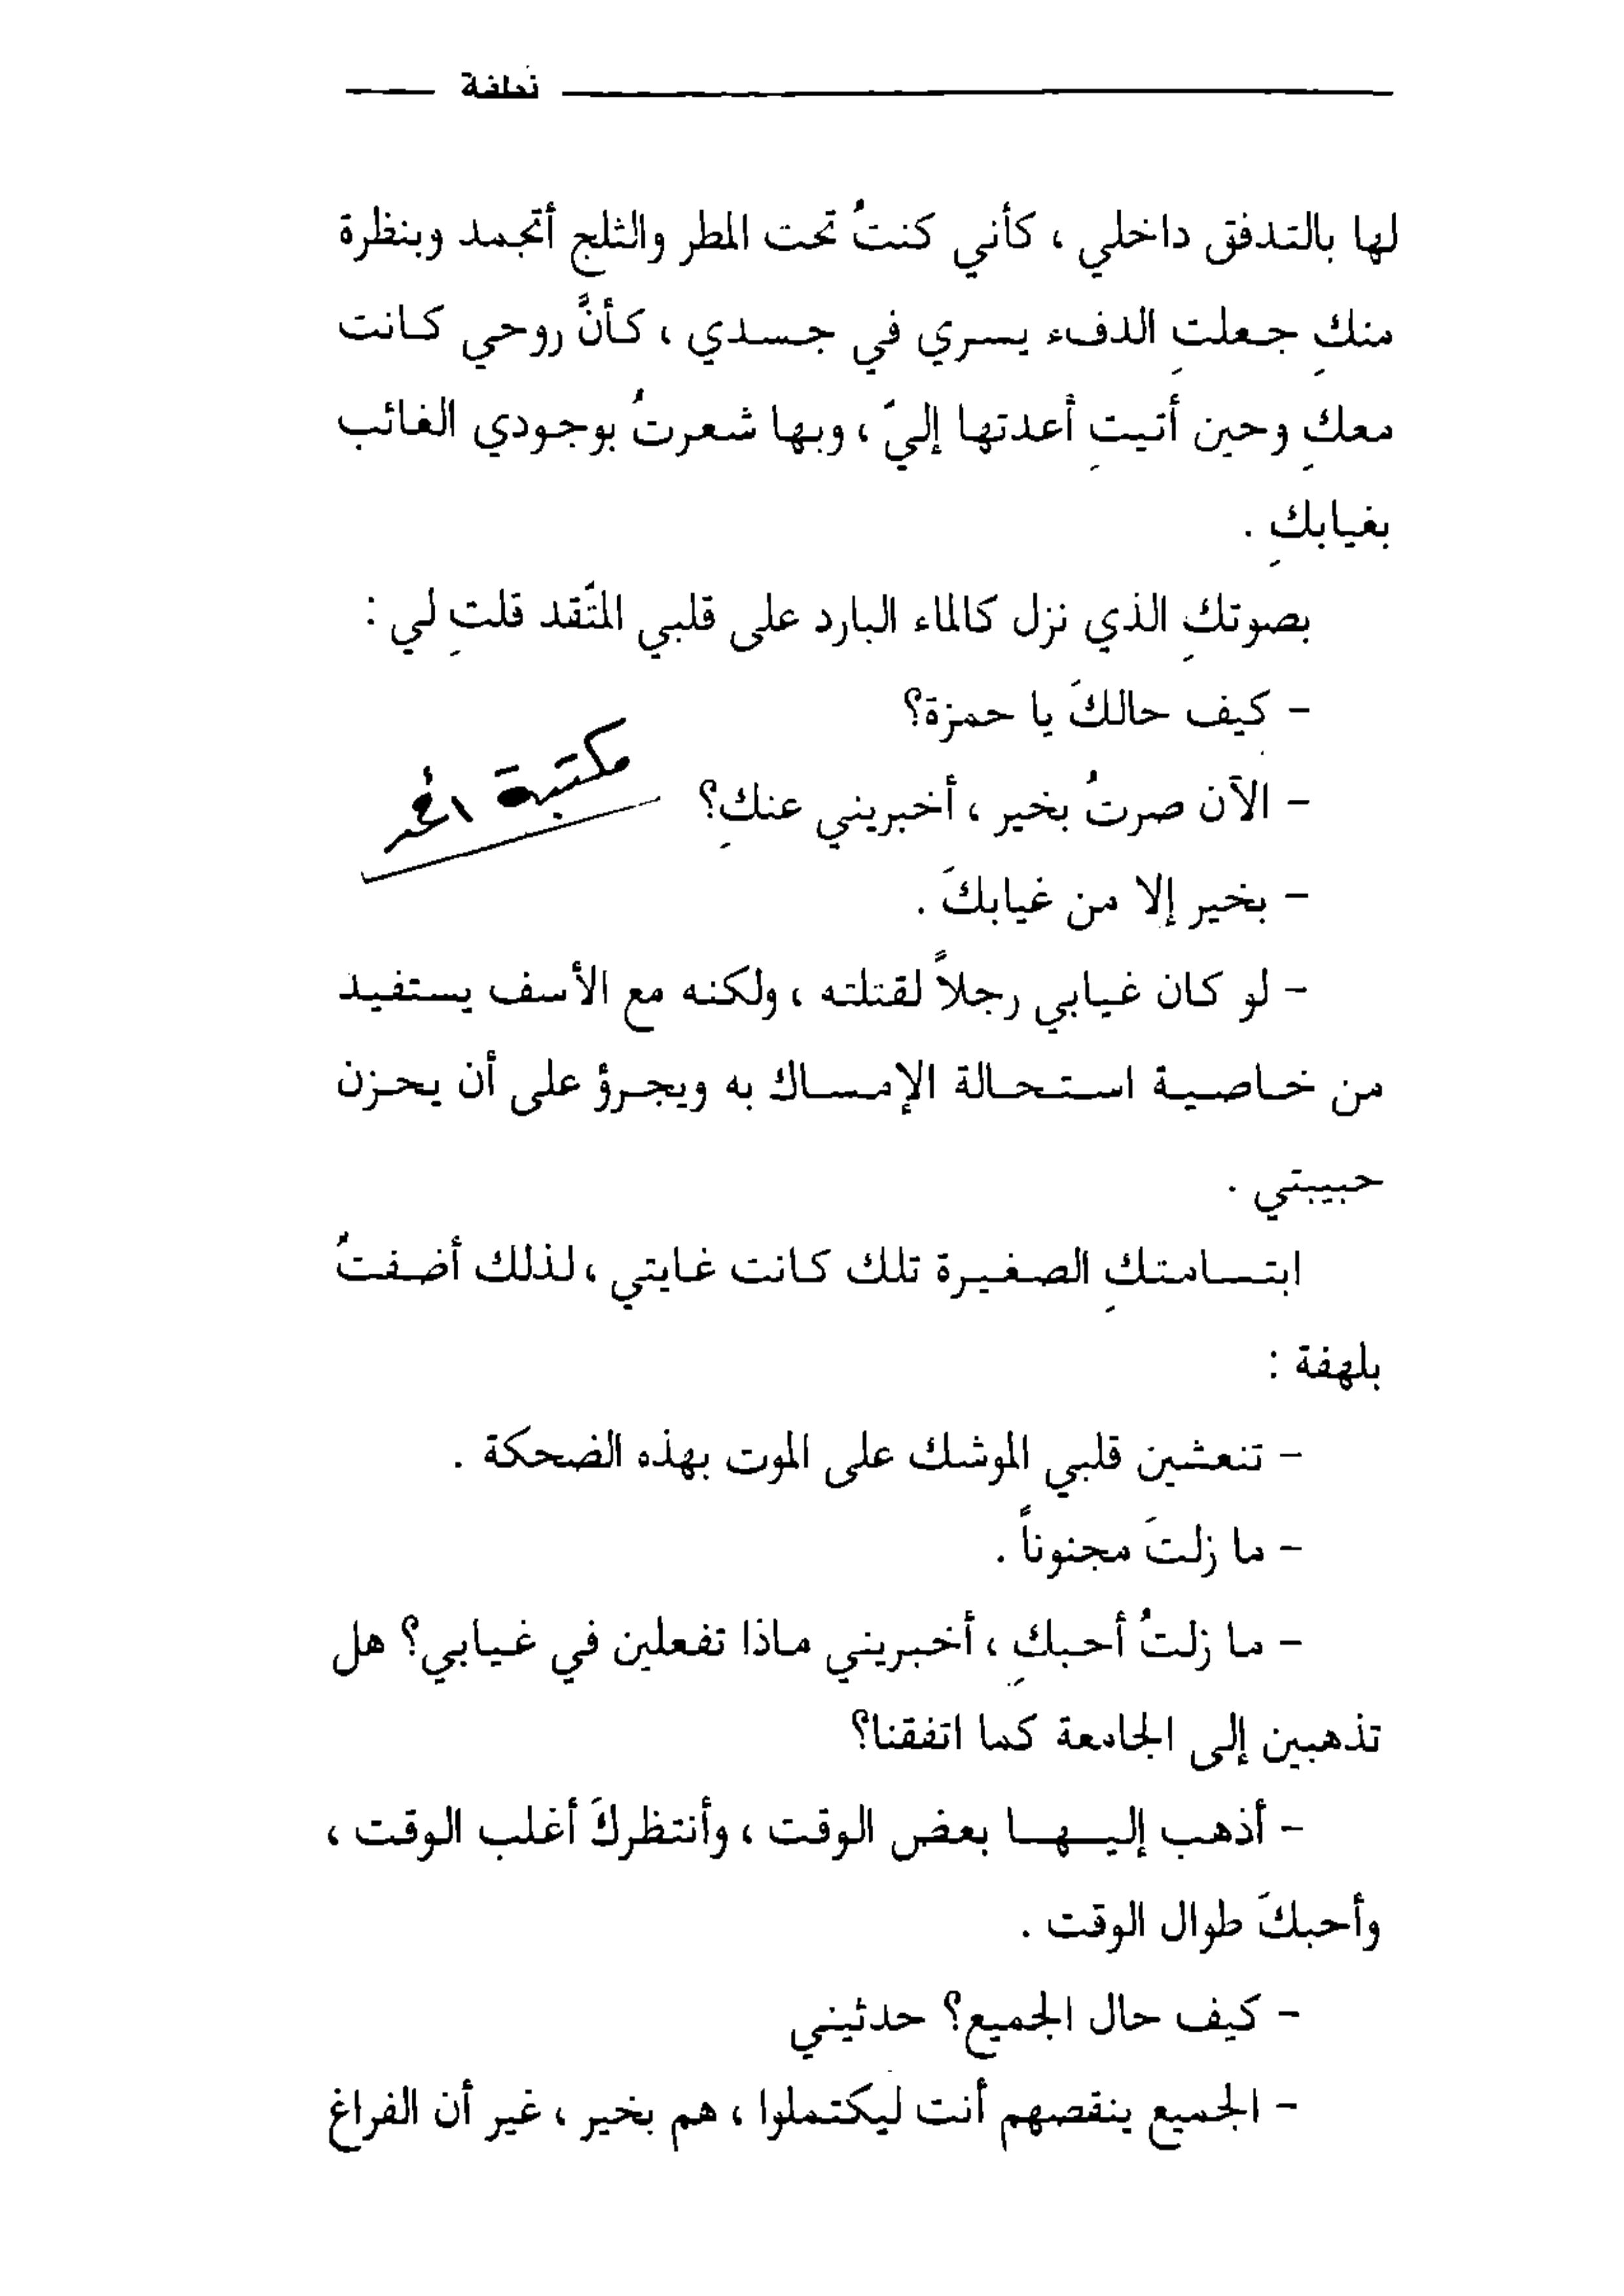 نطفة
لها بالتدفق داخلي ، كأني كنتُ تحت المطر والثلج أتجمد وبنظرة
منكِ جعلتِ الدفء يسري في جسدي ، كأنَّ روحي كانت
معكِ وحين أتيتِ أعدتها إليّ ، وبها شعرتُ بوجودي الغائب
بغيابكِ .
بصوتكِ الذي نزل كالماء البارد على قلبي المتَّقد قلتِ لي :
- كيف حالكَ يا حمزة؟
- الآن صرتُ بخير ، أخبريني عنكِ؟
مكتبة
- بخير إلا من غيابكَ .
- لو كان غيابي رجلاً لقتلته ، ولكنه مع الأسف يستفيد
من خاصية استحالة الإمساك به ويجرؤ على أن يحزن
حبيبتي .
ابتسامتكِ الصغيرة تلك كانت غايتي ، لذلك أضفتُ
بلهفة :
- تنعشين قلبي الموشك على الموت بهذه الضحكة .
- ما زلتَ مجنوناً .
- ما زلتُ أحبكِ ، أخبريني ماذا تفعلين في غيابي؟ هل
تذهبين إلى الجامعة كما اتفقنا؟
- أذهب إليها بعض الوقت ، وأنتظركَ أغلب الوقت ،
وأحبكَ طوال الوقت .
- كيف حال الجميع؟ حدثيني
- الجميع ينقصهم أنت ليكتملوا ، هم بخير ، غير أن الفراغ